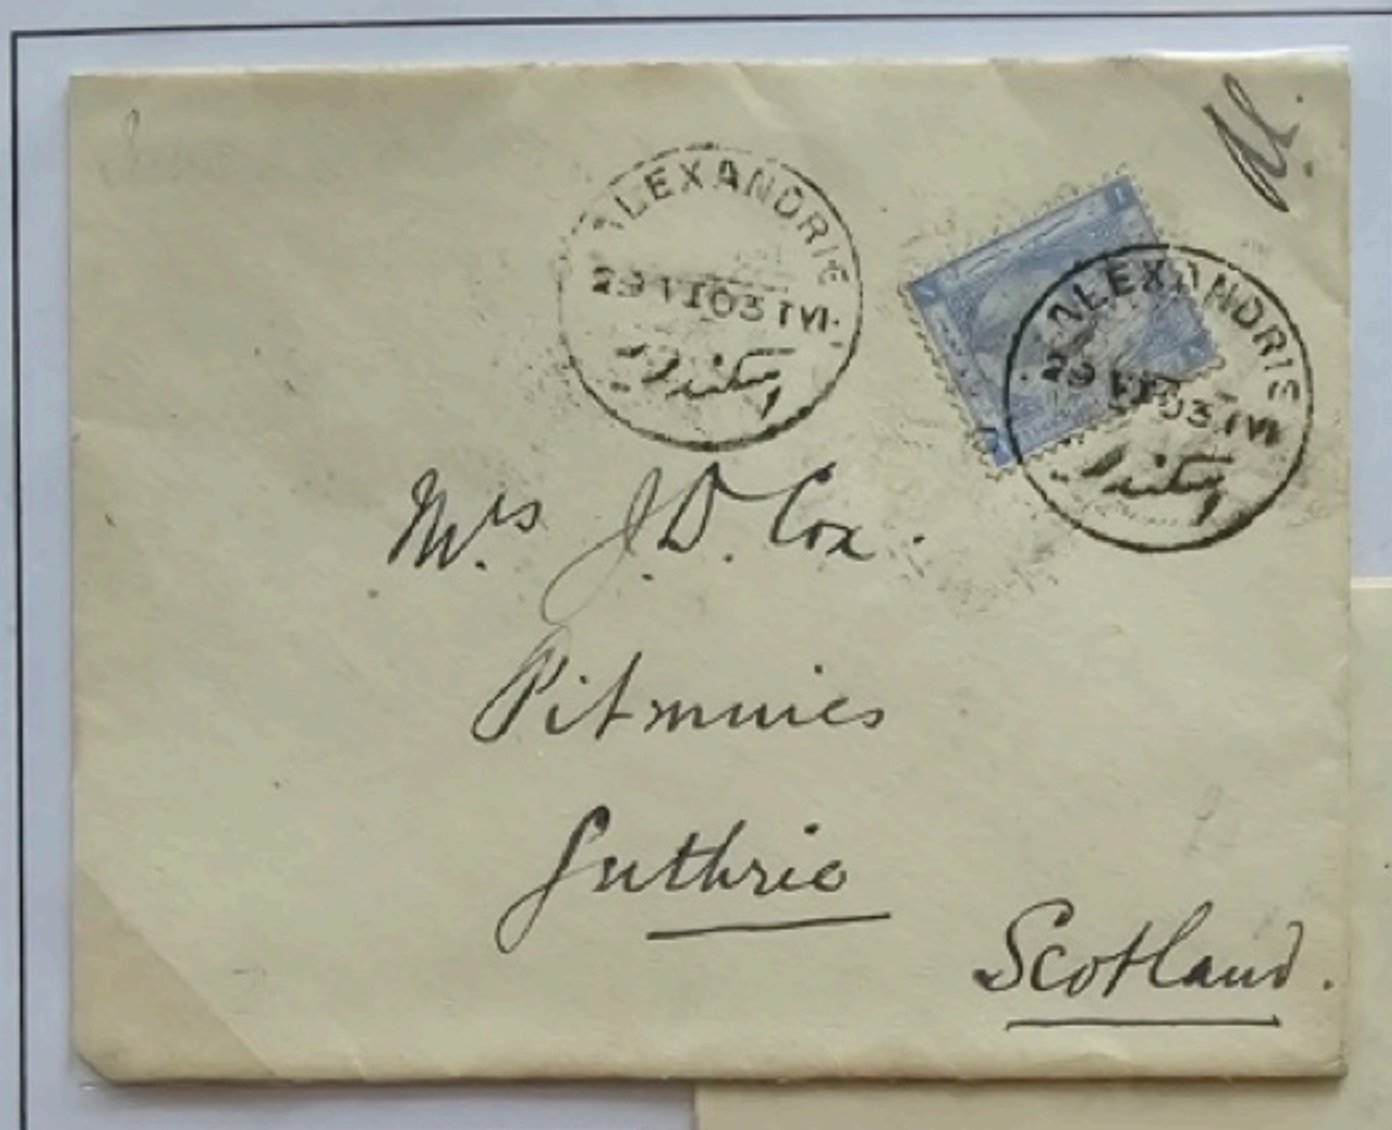 ALEXANDRIE
29 VI 03 T VI
ALEXANDRIE
29 VI 03 T VI
Mrs. J. D. Cox.
Pitmuies
Guthrie
Scotland.